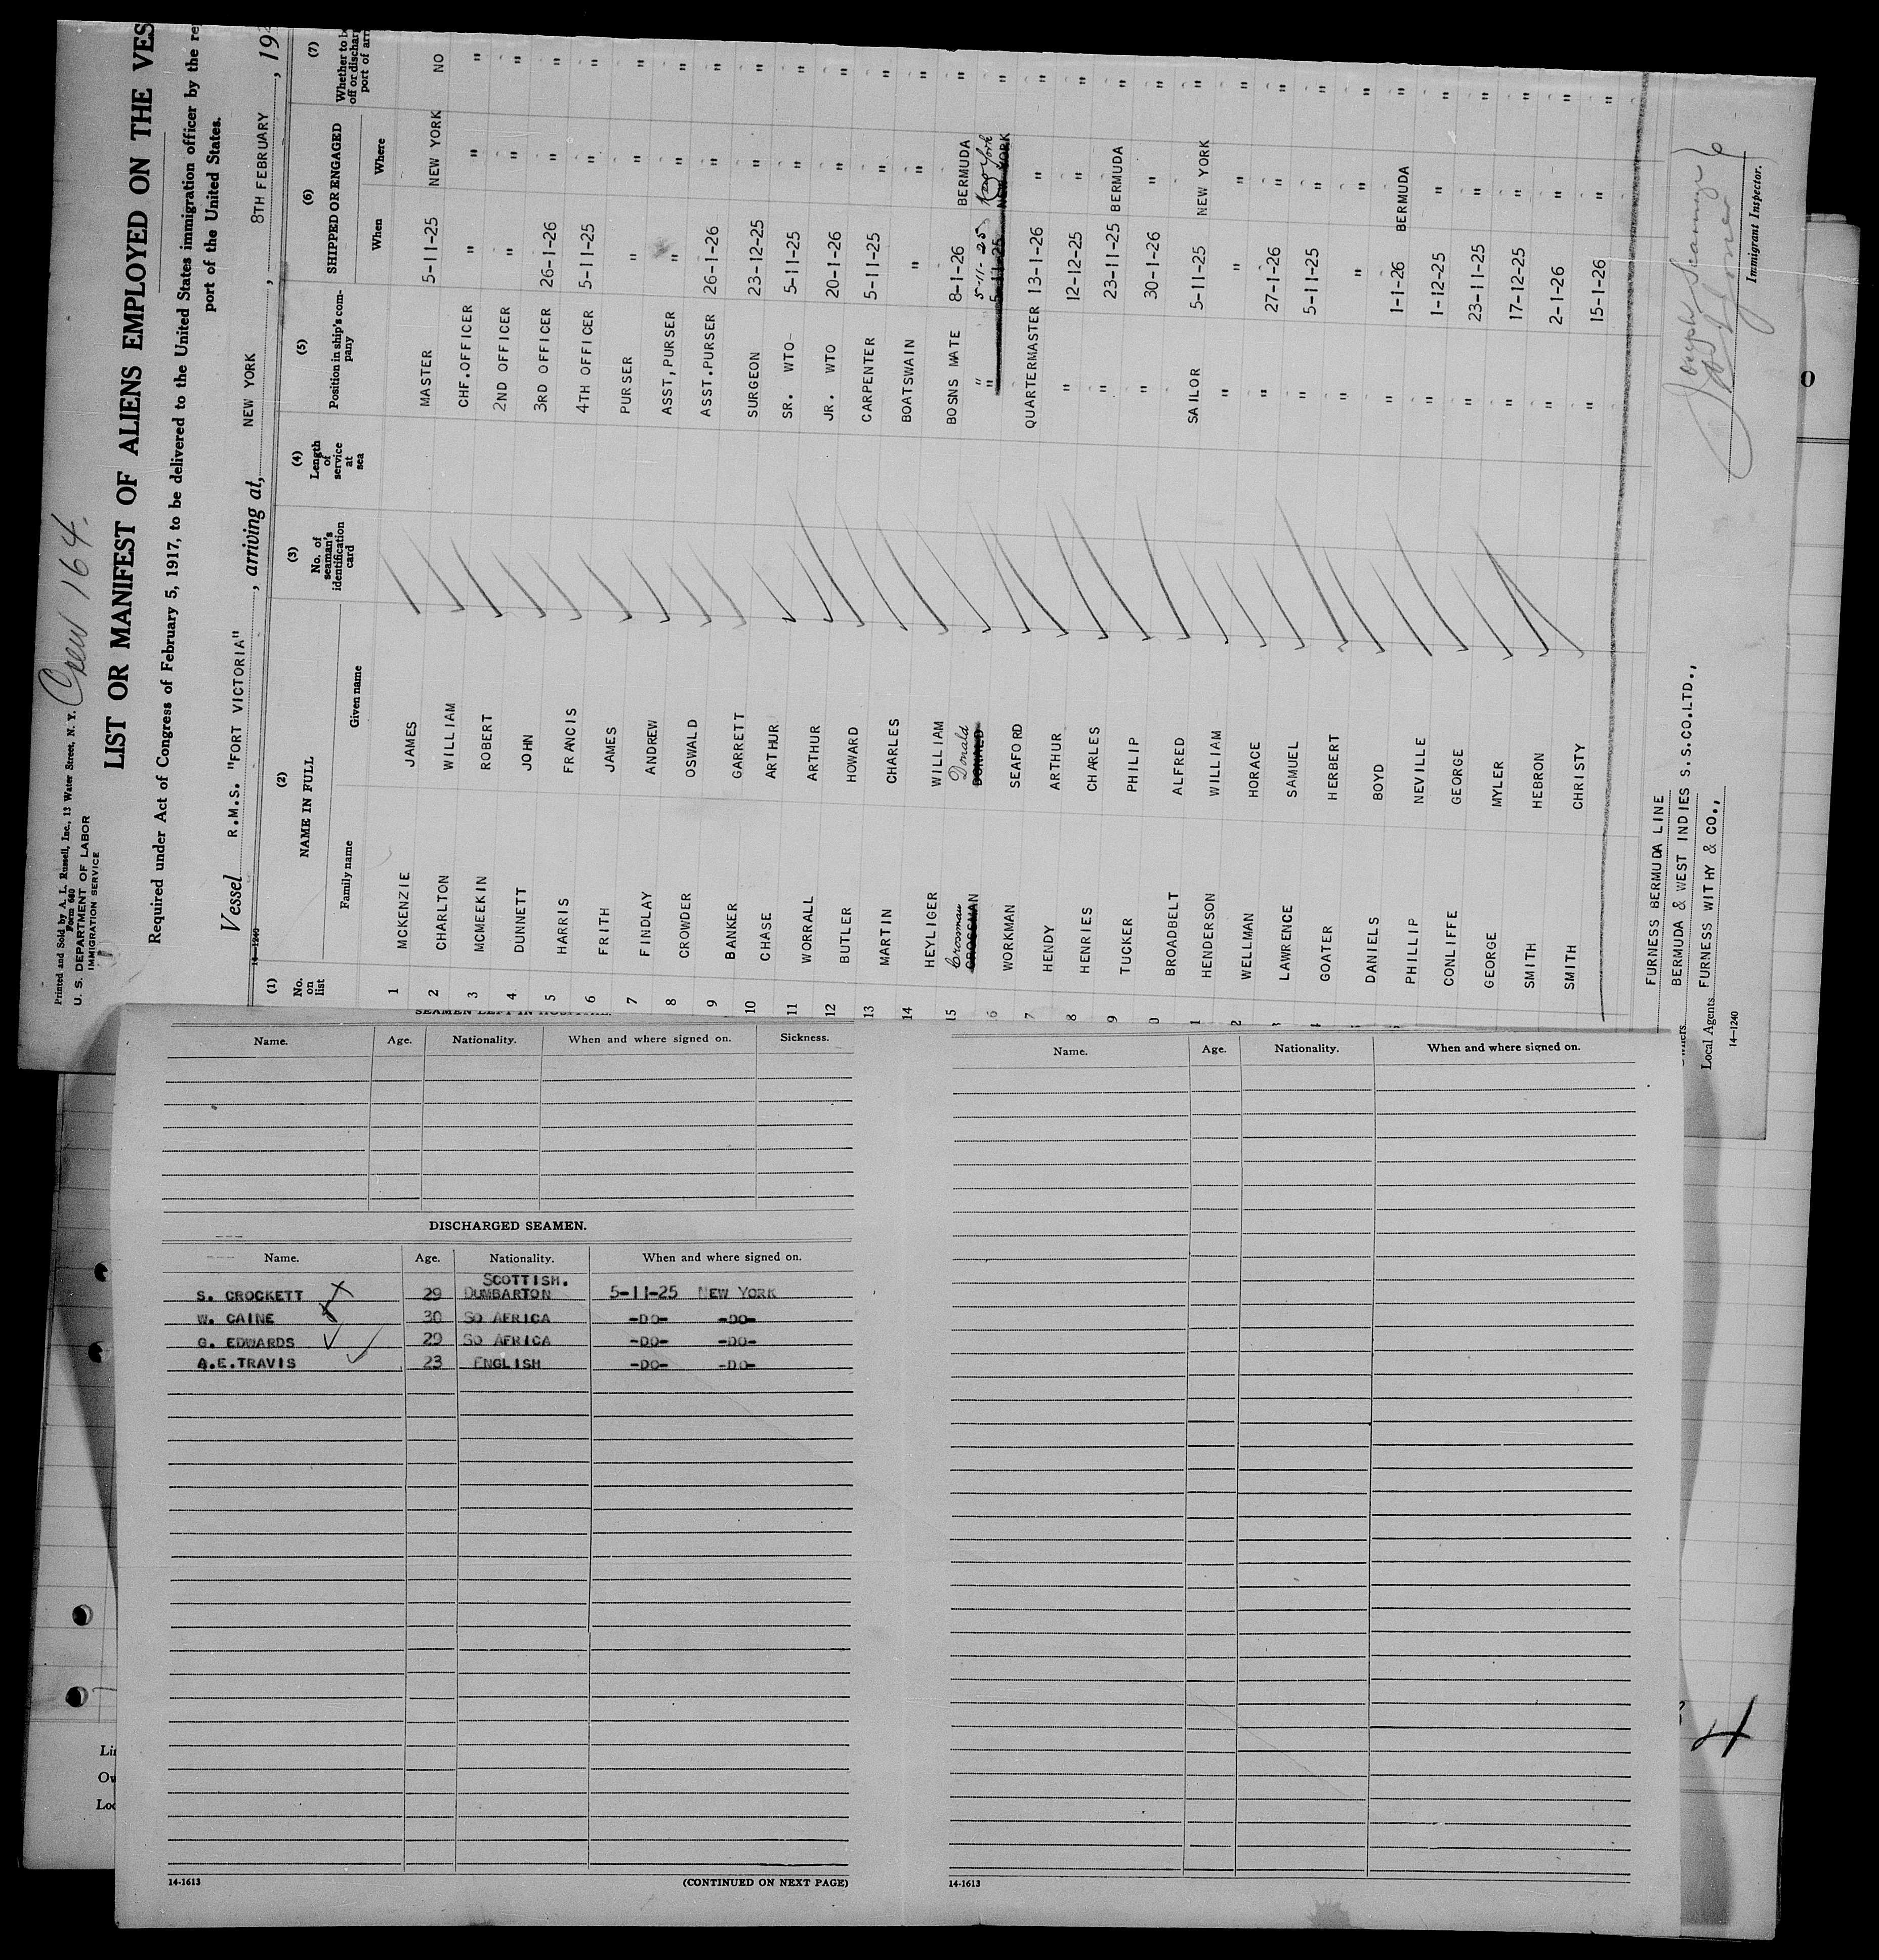 Printed and Sold by A. L. Russell, Inc., 13 Water Street, N. Y.
Form 680
U. S. DEPARTMENT OF LABOR
IMMIGRATION SERVICE
Crew 164.
LIST OR MANIFEST OF ALIENS EMPLOYED ON THE VES
Required under Act of Congress of February 5, 1917, to be delivered to the United States immigration officer by the re
port of the United States.
Vessel R.M.S. "FORT VICTORIA", arriving at, NEW YORK, 8TH FEBRUARY, 19
14-1240
(1) (2) (3) (4) (5) (6) (7)
No. on list NAME IN FULL No. of seaman's identification card Length of service at sea Position in ship's company SHIPPED OR ENGAGED Whether to b off or dischar port of arr
Family name Given name When Where
1 MCKENZIE JAMES MASTER 5-11-25 NEW YORK NO
2 CHARLTON WILLIAM CHF.OFFICER " " "
3 MCMEEKIN ROBERT 2ND OFFICER " " "
4 DUNNETT JOHN 3RD OFFICER 26-1-26 " "
5 HARRIS FRANCIS 4TH OFFICER 5-11-25 " "
6 FRITH JAMES PURSER " " "
7 FINDLAY ANDREW ASST,PURSER " " "
8 CROWDER OSWALD ASST.PURSER 26-1-26 " "
9 BANKER GARRETT SURGEON 23-12-25 " "
10 CHASE ARTHUR SR. WTO 5-11-25 " "
11 WORRALL ARTHUR JR. WTO 20-1-26 " "
12 BUTLER HOWARD CARPENTER 5-11-25 " "
13 MARTIN CHARLES BOATSWAIN " " "
14 HEYLIGER WILLIAM BOSNS MATE 8-1-26 BERMUDA "
15 Crossman Donald " 5-11-25 New York "
CROSSMAN DONALD " 5-11-25 NEW YORK
6 WORKMAN SEAFORD QUARTERMASTER 13-1-26 " "
7 HENDY ARTHUR " 12-12-25 " "
8 HENRIES CHARLES " 23-11-25 BERMUDA "
9 TUCKER PHILIP " 30-1-26 " "
0 BROADBELT ALFRED SAILOR 5-11-25 NEW YORK "
1 HENDERSON WILLIAM " " " "
2 WELLMAN HORACE " 27-1-26 " "
LAWRENCE SAMUEL " 5-11-25 " "
GOATER HERBERT " " " "
DANIELS BOYD " 1-1-26 BERMUDA "
PHILLIP NEVILLE " 1-12-25 " "
CONLIFFE GEORGE " 23-11-25 " "
GEORGE MYLER " 17-12-25 " "
SMITH HEBRON " 2-1-26 " "
SMITH CHRISTY " 15-1-26 " "
FURNESS BERMUDA LINE
BERMUDA & WEST INDIES S.S.CO.LTD.,
Local Agents FURNESS WITHY & CO.,
14-1240
Immigrant Inspector.
SEAMEN LEFT IN HOSPITAL.
Name. Age. Nationality. When and where signed on. Sickness.
DISCHARGED SEAMEN.
Name. Age. Nationality. When and where signed on.
S. CROCKETT 29 SCOTTISH. DUMBARTON 5-11-25 NEW YORK
W. CAINE 30 SO AFRICA -DO- -DO-
G. EDWARDS 29 SO AFRICA -DO- -DO-
A.E.TRAVIS 23 ENGLISH -DO- -DO-
14-1613 (CONTINUED ON NEXT PAGE)
Name. Age. Nationality. When and where signed on.
14-1613
4